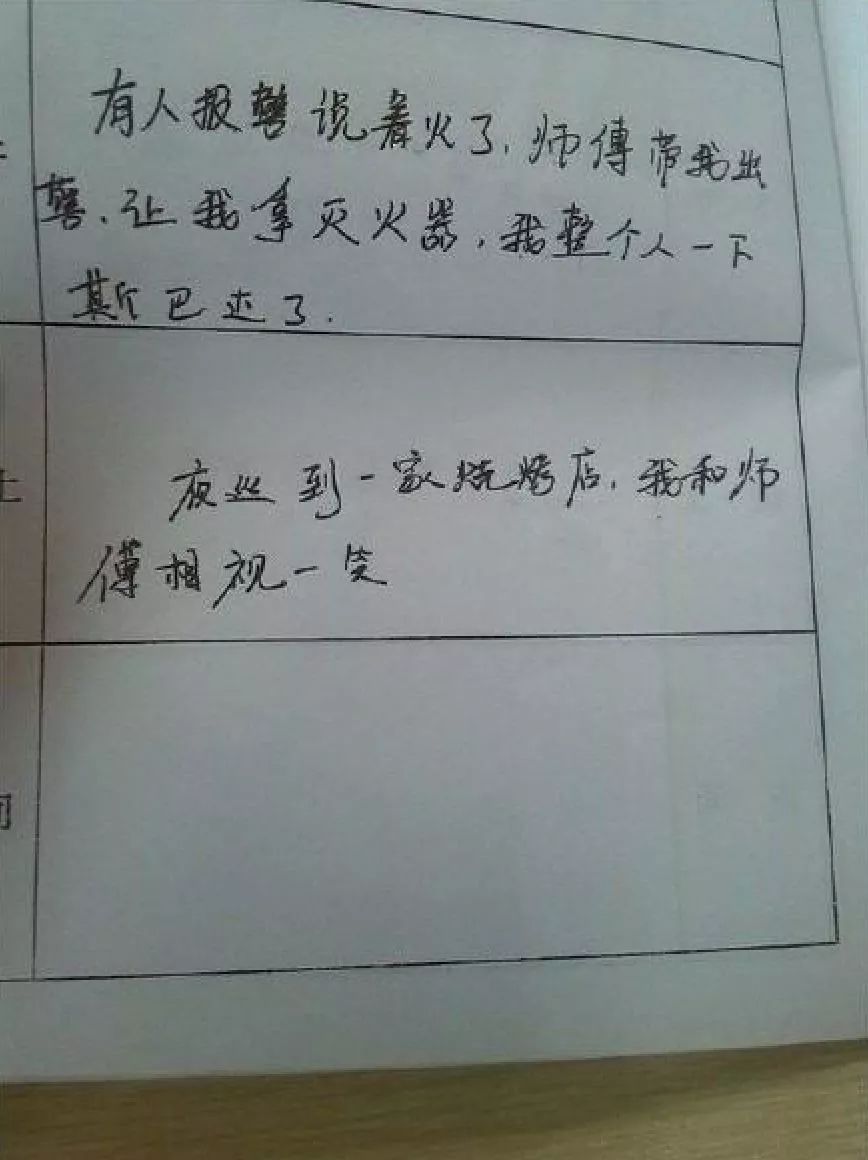 有人报警说着火了,师傅带我出
警、让我拿灭火器,我整个人一下
斯巴达了.
夜巡到一家烧烤店,我和师
傅相视一笑